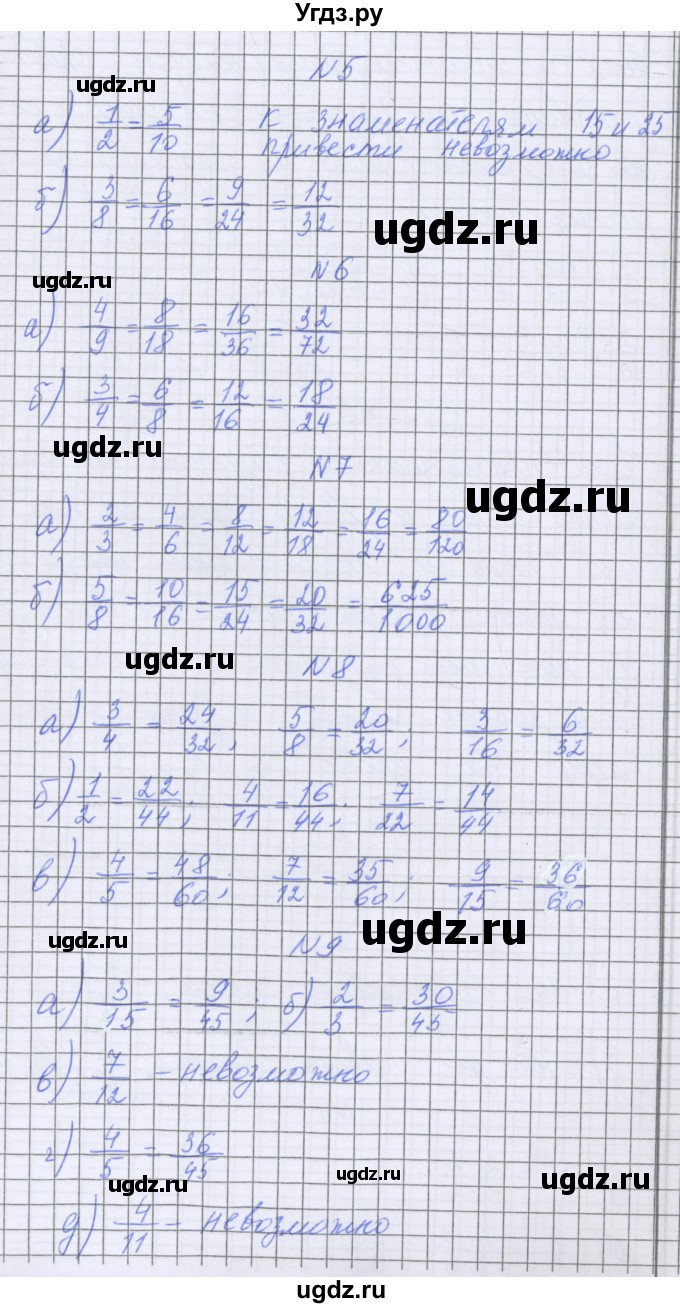 Угдз.ру
№5
ugdz.ru
а) 1/2 = 5/10 К знаменателям 15 и 25
привести невозможно
б) 3/8 = 6/16 = 9/24 = 12/32
ugdz.ru
№6
ugdz.ru
а) 4/9 = 8/18 = 16/36 = 32/72
б) 3/4 = 6/8 = 12/16 = 18/24
ugdz.ru
№7
ugdz.ru
а) 2/3 = 4/6 = 8/12 = 12/18 = 16/24 = 80/120
б) 5/8 = 10/16 = 15/24 = 20/32 = 625/1000
ugdz.ru
№8
а) 3/4 = 24/32; 5/8 = 20/32; 3/16 = 6/32
б) 1/2 = 22/44; 4/11 = 16/44; 7/22 = 14/44
в) 4/5 = 48/60; 7/12 = 35/60; 9/15 = 36/60
ugdz.ru
№9
ugdz.ru
а) 3/15 = 9/45; б) 2/3 = 30/45
в) 7/12 - невозможно
г) 4/5 = 36/45
ugdz.ru
ugdz.ru
д) 4/11 - невозможно
ugdz.ru